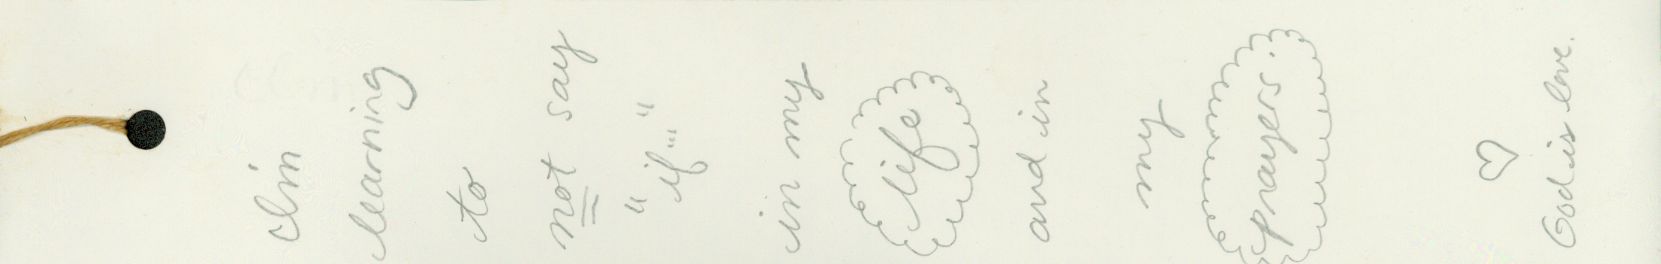 I'm
learning
to
not say
"if..."
in my
life
and in
my
prayers.
God is love.